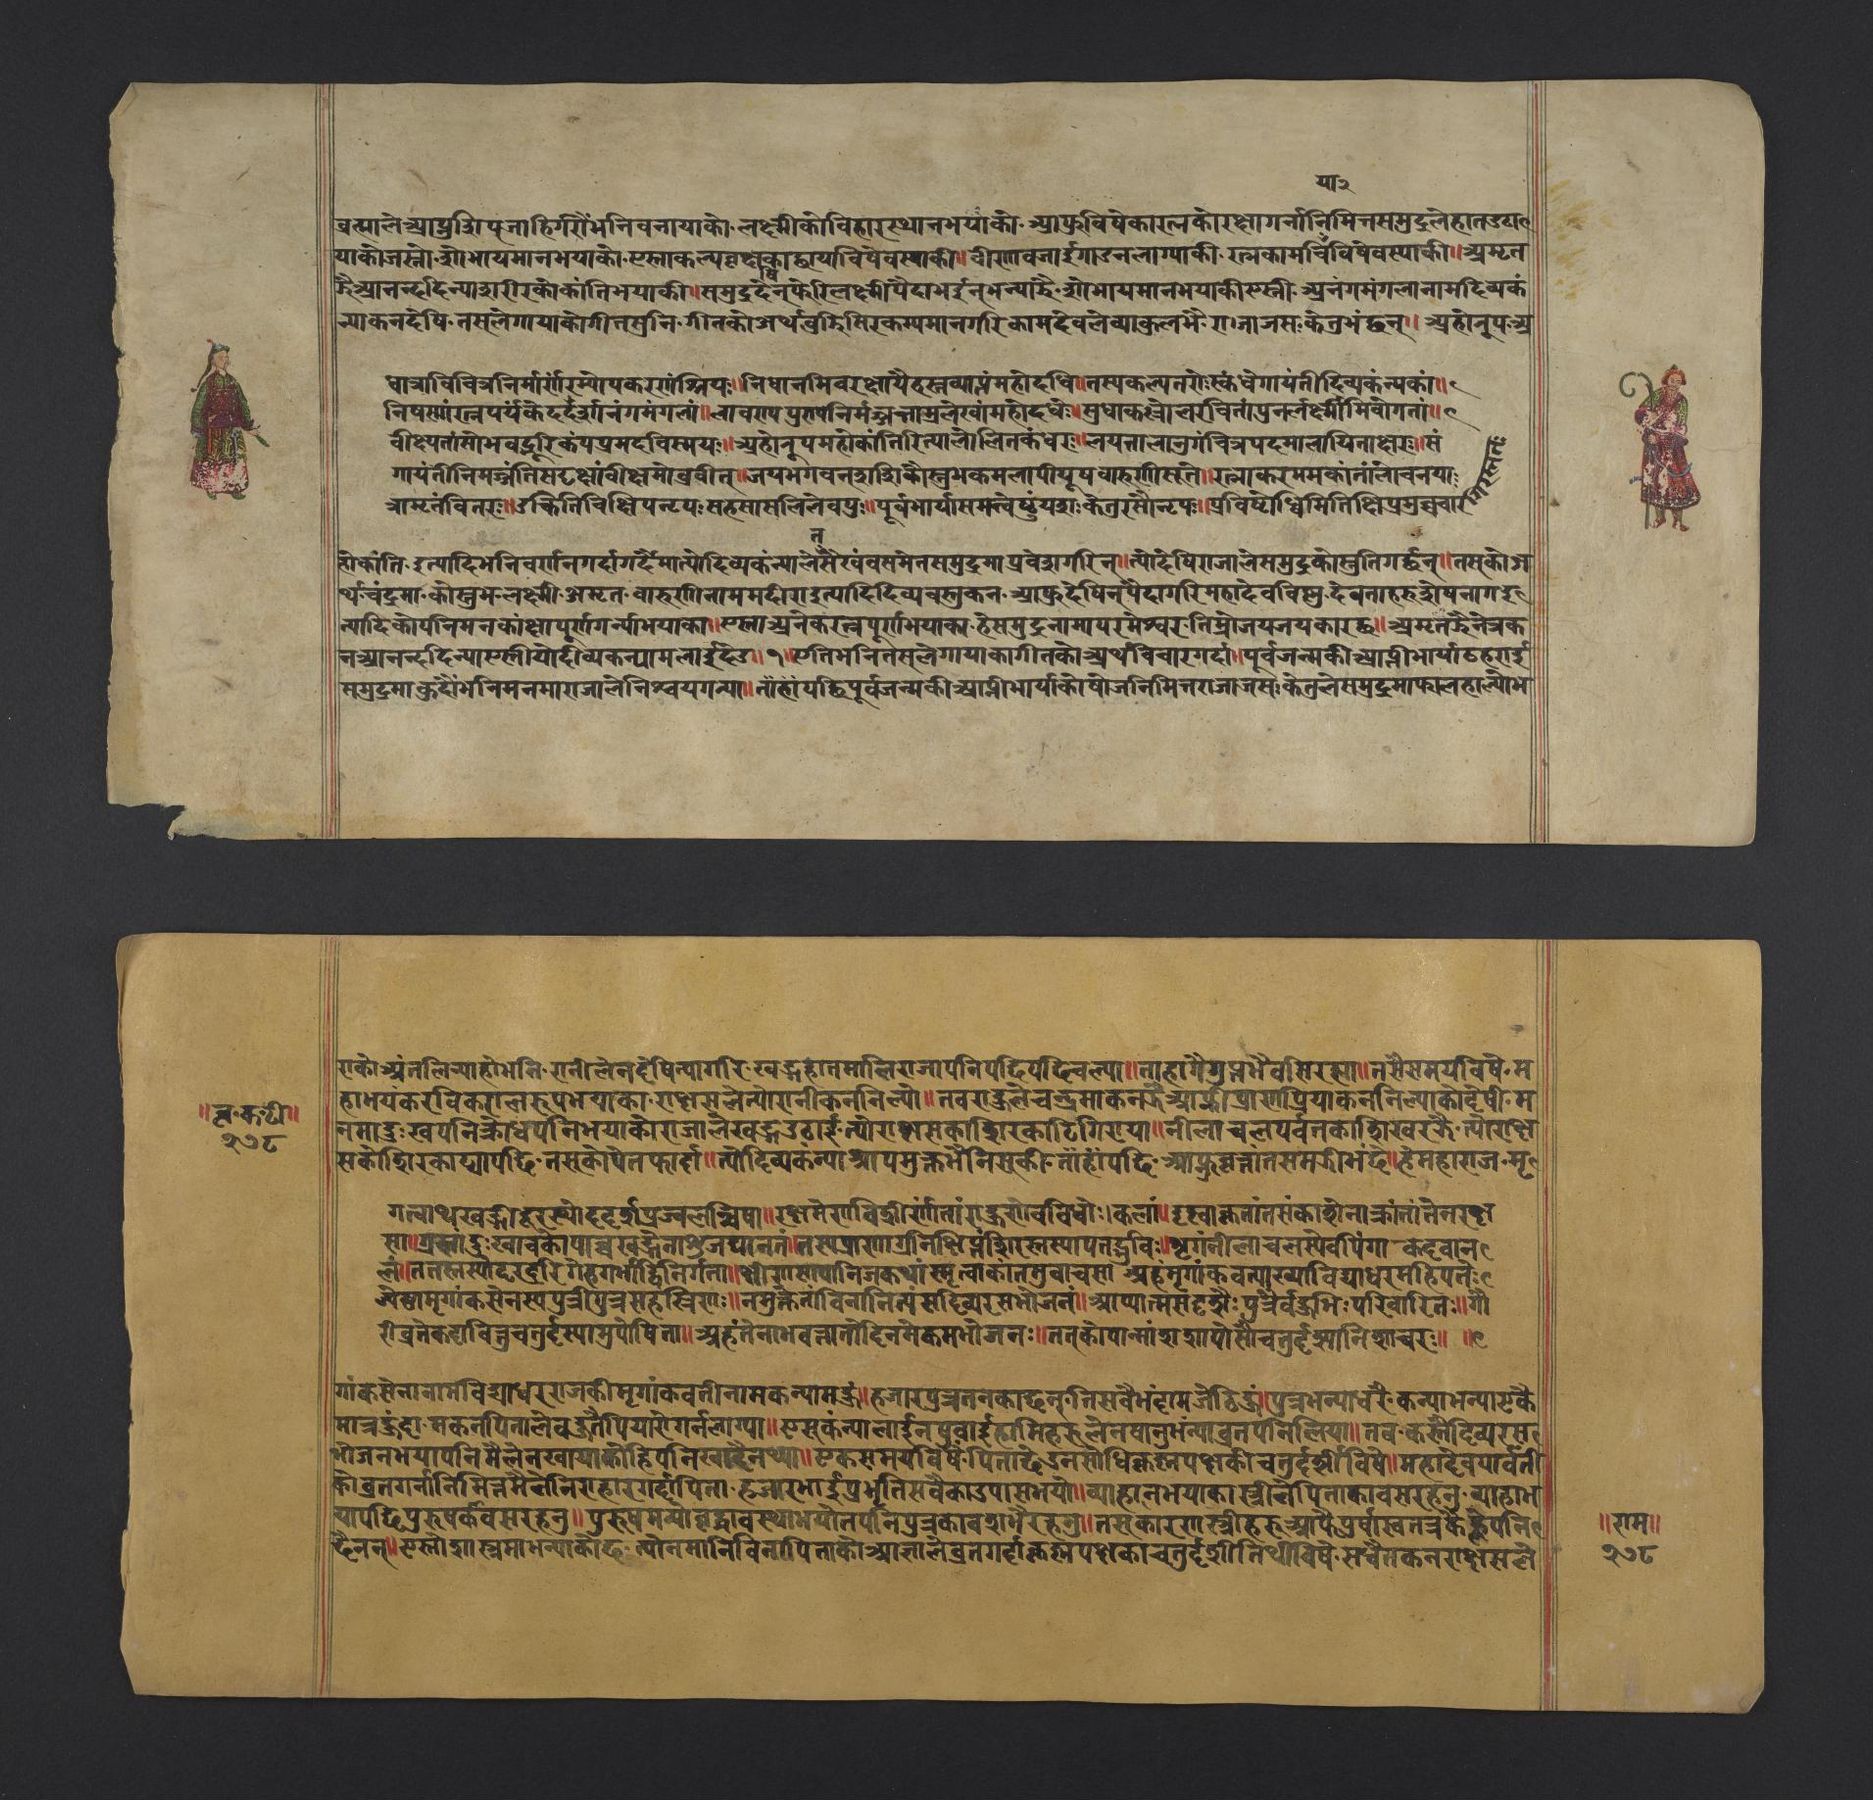 या२
ब्रह्माले आफ्रु शिप जाहि गरौं भनि बनायाको लक्ष्मीको विहारस्थान भयाको आफुविषे का रत्नको रक्षा गर्ना निमित्त समुद्रले हात उठा
याको जस्तो शोभायमान भयाको एस्ता कल्पवृक्षका छायाविषे बस्याकी॥ वीणा बजाई गाउन लाग्याकी रत्नका मचिविषे बस्याकी॥ अमृत
झै आनन्द दिन्या शरीरको कांति भयाकी॥ समुद्रदेषि फेरि लक्ष्मी पैदा भइन् भन्या झै शोभायमान भयाकी एस्ती अनंगमंगला नाम दिव्यकं
न्याकन देषि तसले गायाको गीत सुनि गीतको अर्थ बुझि सिर कम्पमान गरि कामदेवले व्याकुल भै राजा जसःकेतु भंछन्॥ अहो नूप अ
धात्रा विचित्रनिर्माणं रम्योपकरणं श्रियः॥ निधानमिव रक्षायै हस्तव्याप्तं महोदधि॥ तस्य कल्पतरोः स्कंधे गायंतीं दिव्यकंन्यकां॥
निषण्णां रत्नपर्यंके ददर्शानंगमंगलां॥ लावण्य पुरुष निर्मज्जत्ताम्रलेखां महोदधेः॥ सुधाकल्लोलरचितां पुनर्लक्ष्मीमिवोगतां॥
वीक्ष्य तां सोभवद्भूरिकंपप्रमदविस्मयः॥ अहो नूपमहो कांतिरित्यालोलितकंधरः॥ लयतालानुगं चित्रपदमालायिताक्षरः॥ सं
गायंतीं निमज्जंतिं सदृक्षां वीक्ष्य सोब्रवीत्॥ जय भगवन् शशिकौस्तुभकमलापीयूषवारुणीसूते॥ रत्नाकर मम कांतां लोचनया
त्रामृतं वितर॥ उक्त्वेति चिक्षिपे नृपः सहसा सलिले वपुः॥ पूर्वभार्यां समन्वेष्टुं यशःकेतुरसौ नृपः॥ प्रविष्टोब्धिमिति क्षिप्र
हो कांति इत्यादि भनि वर्णन गर्दा गर्दैमा त्यो दिव्यकंन्याले सैखंबसमेत समुद्रमा प्रवेश गरिन्॥ त्यो देषि राजाले समुद्रको स्तुति गर्छन्॥ तसको अ
र्थ चंद्रमा कौस्तुभ लक्ष्मी अमृत वारुणि नाम मदीरा इत्यादि दिव्यवस्तुकन आफुदेषिन् पैदा गरि महादेव विष्णु देवताहरु शेषनाग इ
त्यादिको पनि मनकांक्षा पूर्ण गर्न्या भयाका॥ एस्ता अनेक रत्नपूर्ण भयाका हे समुद्र नामा परमेश्वर तिम्रो जय जयकार छ॥ अमृतझै नेत्रक
न आनन्द दिन्या एस्ती यो दीव्यकन्या मलाई देउ॥१॥ एति भनि तसले गायाका गीतको अर्थ विचार गर्दा॥ पूर्वजन्मकी आफ्नी भार्या ठहराई
समुद्रमा कुदौं भनि मनमा राजाले निश्चय गर्न्या॥ तांहां पछि पूर्वजन्मकी आफ्नी भार्याको षोज निमित्त राजा जसःकेतुले समुद्रमा फाल हाल्यो भ
॥वृ·क·टी॥
२७८
राको अंत लियाहो भनि रानीले नदेषिन्या गरि खड्ग हातमा लि राजा पनि पछि पछि चल्या॥ ताहां गै गुप्त भै बसि रह्या॥ तसै समयविषे म
हाभयंकर विकराल रूप भयाका राक्षसले त्यो रानीकन निल्यो॥ तब राहुले चन्द्रमाकन झै आफ्नी प्राणप्रियाकन निल्याको देषी म
नमा दुःख पनि क्रोध पनि भयाको राजाले खड्ग उठाई त्यो राक्षसका शिर काटि गिराया॥ नीलाचल पर्वतका शिखर झै त्यो राक्ष
सको शिर काट्यापछि तसको पेत फार्दा॥ त्यो दिव्यकंन्या श्रापमुक्त भै निस्की तांहांपछि आफ्नु वृत्तांत समझी भंछे॥ हे महाराज मृ
गत्वाथ खड्गी दूरस्थो ददर्श प्रज्वलत्त्विषा॥ रक्षसेण विशीर्णां तां राहुणेव विधोः कलां॥ दृष्ट्वा कृतांतसंकाशेनाक्रांतां तेन रक्ष
सा॥ ग्रस्तां दुःखाच्च कोपाच्च खड्गेनाशु जघान तं॥ तस्य प्राणाग्रनिक्षिप्तं शिरस्तस्यापतद्भुवि॥ शृगं नीलाचलस्येव पिंगा
लं॥ ततस्तस्योदरदरिगेहगर्भाद्विनिर्गता॥ क्षीणशापा निजकथां स्मृत्वा कांतमुवाच सा॥ अहं मृगांकवत्याख्या विद्याधरमहिपतेः
श्रेष्ठा मृगांकसेनस्य पुत्री पुत्रसहस्रिणः॥ न भुक्तं तां विना नित्यं स दिव्यरसभोजनं॥ आप्यात्मसदृशैः पुत्रैर्बहुभिः परिवारितः॥ गौ
रीव्रते कदाचित्तु चतुर्दश्यामुपोषिता॥ अहं तेनाभवत्तातो दिनमेकमभोजनः॥ ततः कोपान्मां शशापोसौ चतुर्दश्यां निशाचरः॥
गांकसेना नाम विद्याधरराजकी मृगांकवती नाम कन्या म हुं॥ हजार पुत्र तनका छन् ति सबै भंदा म जेठि हुं॥ पुत्र भन्या धेरै कन्या भन्या एकै
मात्र हुंदा मकन पिताले बहुतै पियारो गर्न लाग्या॥ एस कंन्यालाई नषुवाई हामिहरुले नषानु भंन्या व्रत पनि लिया॥ तब कस्तै दिव्यरस
भोजन भया पनि मैले नखायाको हि पनि खादैनथ्या॥ एक समयविषे पिता छेउ नसोधि कृष्णपक्षकी चतुर्दशीविषे॥ महादेव पार्वती
को व्रत गर्ना निमित्त मैले निराहार गर्दा पिता हजार भाई प्रभृति सबैका उपास भयो॥ व्याहा न भयाका स्त्रीले पिताका वसरहनु व्याहा भ
यापछि पुरुषकै वस रहनु॥ पुरुष मर्यो वृद्धावस्था भयो त पनि पुत्रका वश भै रहनु॥ तस कारण स्त्रीहरु आपै पुर्षा स्वतन्त्रकै हुं पनि
छैनन्॥ एस्तो शास्त्रमा भन्याको छ त्यो नमानि विना पिताको आज्ञाले व्रत गर्दा कृष्णपक्षका चतुर्दशी तिथीविषे सधै तकन राक्षसले
॥राम॥
२७८